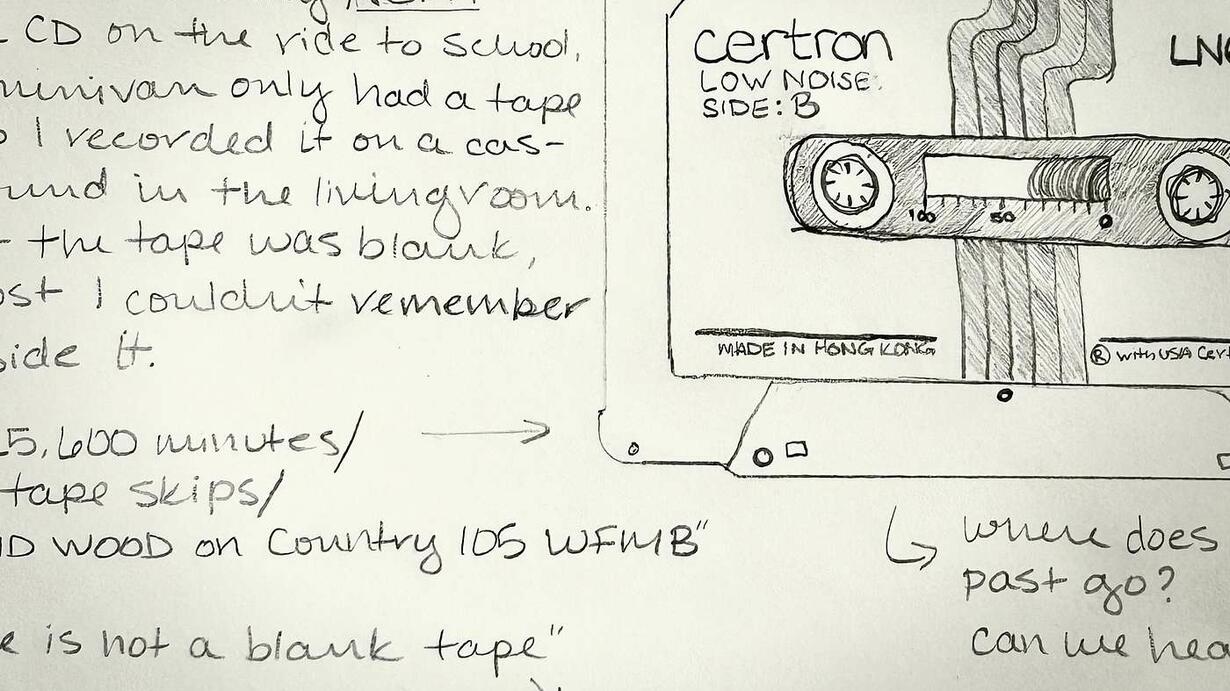 CD on the ride to school,
minivan only had a tape
I recorded it on a cas-
in the livingroom.
the tape was blank,
I couldn't remember
it.
5,600 minutes/
tape skips/
WOOD on Country 105 WFMB"
is not a blank tape"
certron
LOW NOISE
SIDE: B
LN
100 50 0
MADE IN HONG KONG
® with USA Cert
where does
past go?
can we hea